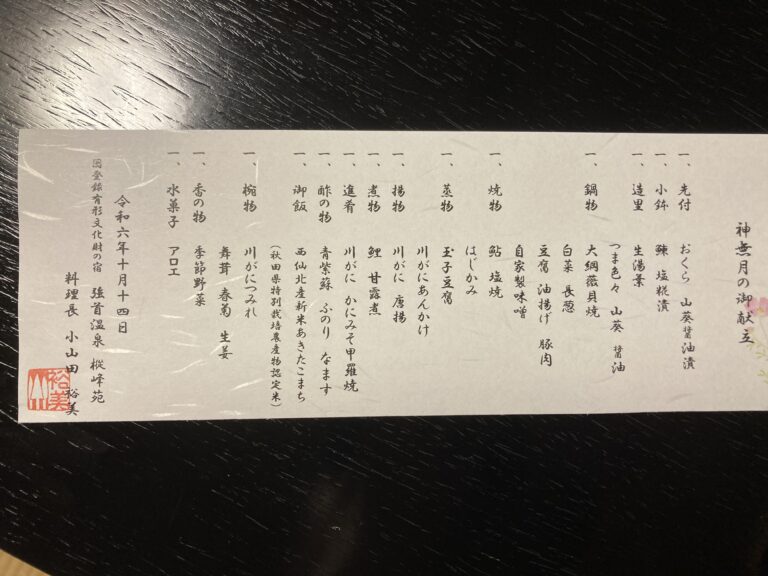 神無月の御献立
一、先付 おくら 山葵醤油漬
一、小鉢 鰊 塩糀漬
一、造里 生湯葉
つま色々 山葵 醤油
一、鍋物 大綱薇貝焼
白菜 長葱
豆腐 油揚げ 豚肉
自家製味噌
一、焼物 鮎 塩焼
はじかみ
一、蒸物 玉子豆腐
川がにあんかけ
一、揚物 川がに 唐揚
一、煮物 鯉 甘露煮
一、進肴 川がに かにみそ甲羅焼
一、酢の物 青紫蘇 ふのり なます
一、御飯 西仙北産新米あきたこまち
(秋田県特別栽培農産物認定米)
一、椀物 川がにつみれ
舞茸 春菊 生姜
一、香の物 季節野菜
一、水菓子 アロエ
令和六年十月十四日
国登録有形文化財の宿 強首温泉 樅峰苑
料理長 小山田 裕美
裕美